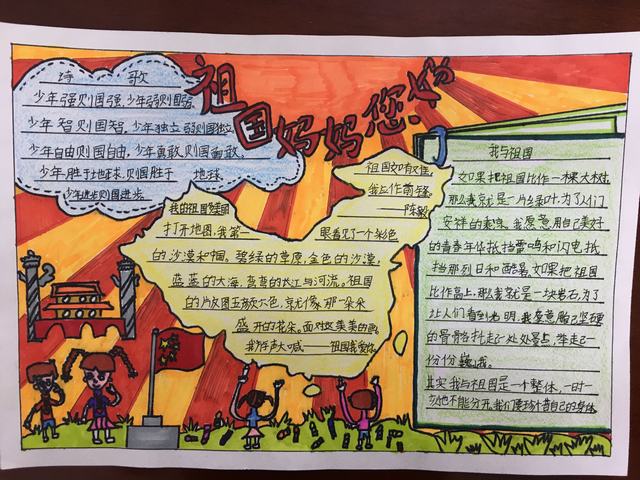 祖国妈妈您好
诗 歌
少年强则国强,少年强则国强
少年智则国智,少年独立则国独立
少年自由则国自由,少年勇敢则国勇敢,
少年胜于地球,则国胜于 地球,
少年进步则国进步
祖国如有难
我应作前锋
陈毅
我的祖国
打开地图,我第一 眼看见了一个彩色
的沙漠和中国。碧绿的草原,金色的沙漠
蓝蓝的大海,弯弯的长江与河流。祖国
的 五颜六色,京尤像那一朵朵
盛开的花朵。面对这美美的画,
我 大喊 祖国我爱你
我与祖国
如果把祖国比作一棵大树,
那么我京尤是一片绿叶,为了人们
安祥的 ,我愿意用自己美好
的青春年华抵挡雷鸣和闪电,抵
挡那烈日和酷暑。如果把祖国
比作高山,那么我京尤是一块岩石,为了
让人们看到 明,我愿意 己坚硬
的骨骼扎走了处处景点,举走了一
份份巍峨。
其实我与祖国是一个整体,一时一
也不能分开,我们要珍惜自己的身体